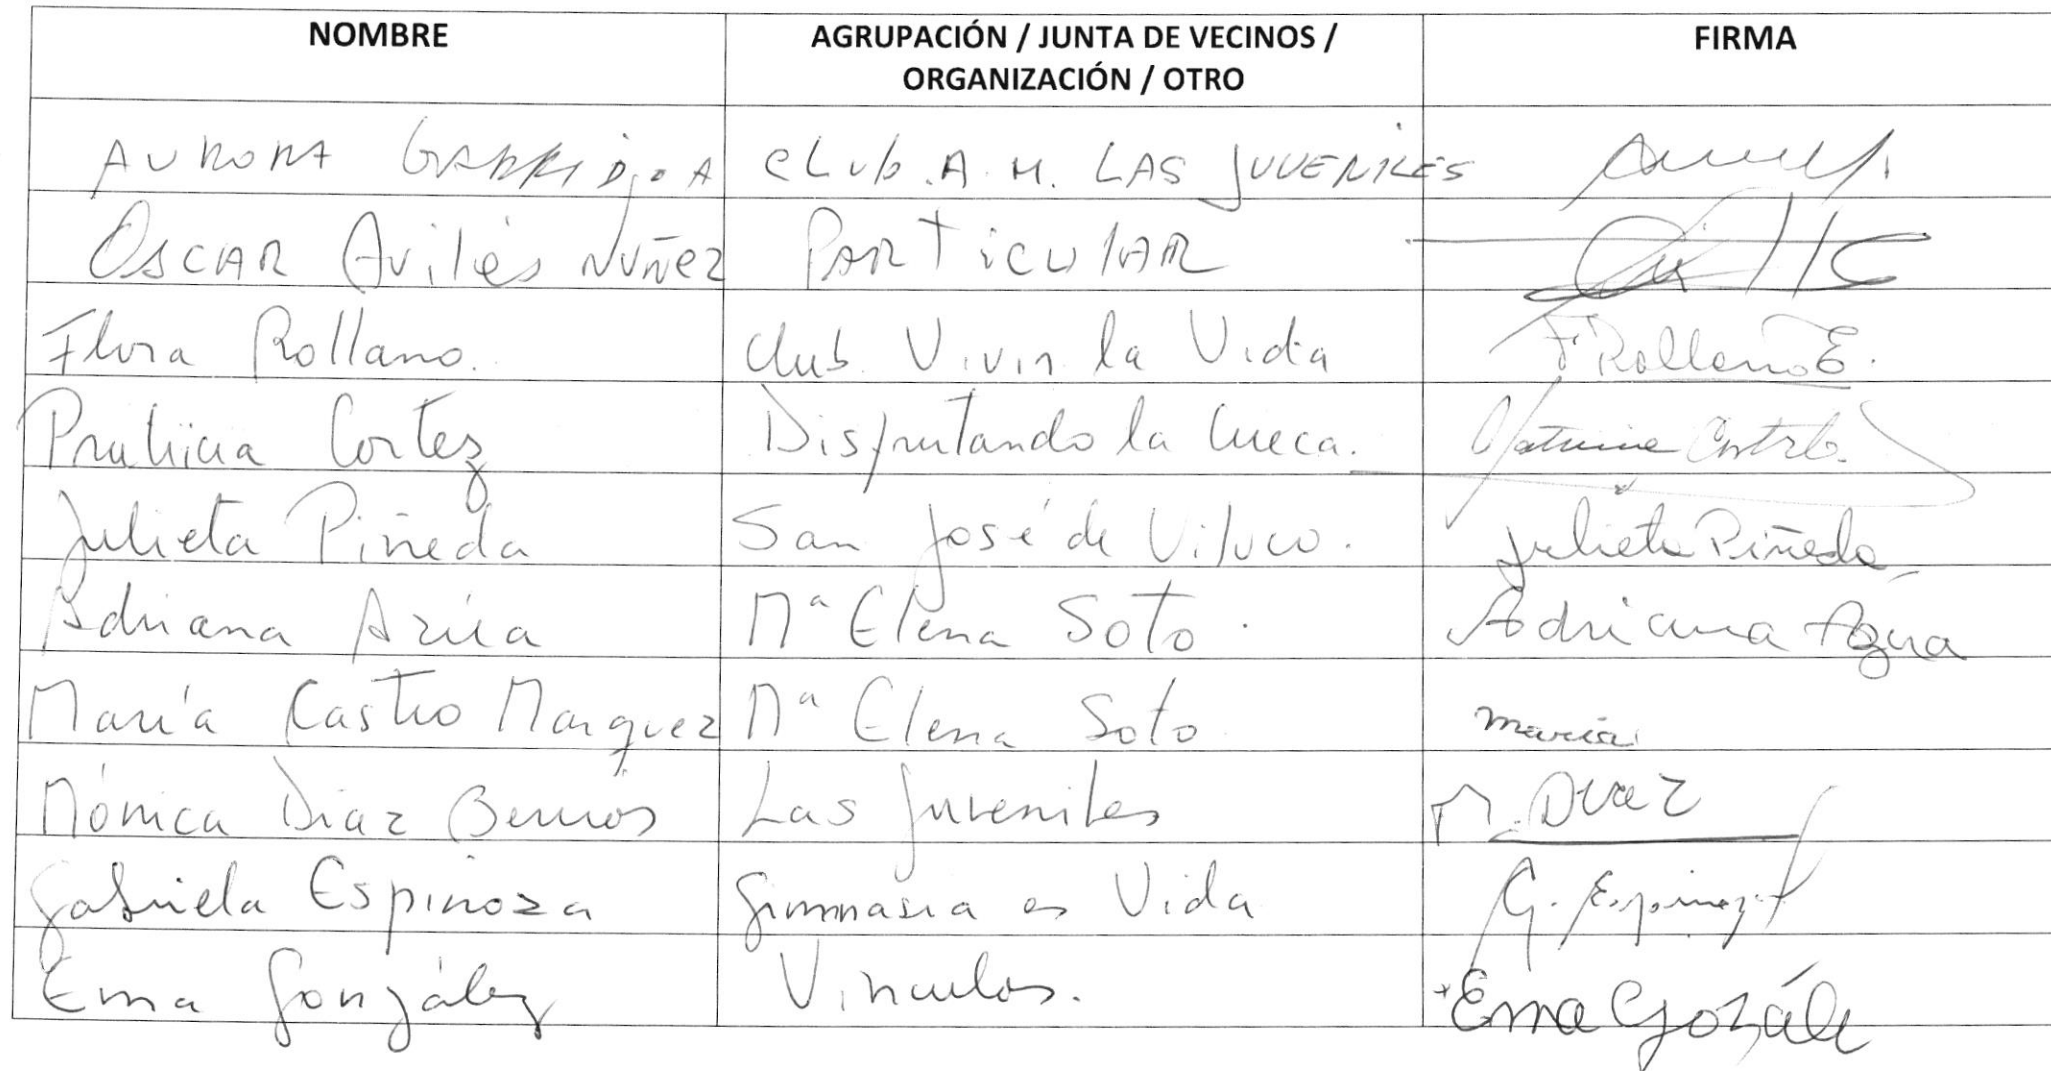 NOMBRE
AGRUPACIÓN / JUNTA DE VECINOS /
ORGANIZACIÓN / OTRO
FIRMA
AURORA GARRIDO A CLUB A. M. LAS JUVENILES
OSCAR Avilés NUÑEZ PARTICULAR
Flora Rollano. Club Vivir la Vida F. Rollano E.
Patricia Cortez Disfrutando la Cueca.
Julieta Piñeda San José de Viluco. Julieta Piñeda
Adriana Azúa Mª Elena Soto. Adriana Azúa
María Castro Marquez Mª Elena Soto maria
Mónica Díaz Berrios Las Juveniles M. DIAZ
Gabriela Espinoza Gimnasia es Vida G. Espinoza
Ema González Vinculos. Ema Gozále